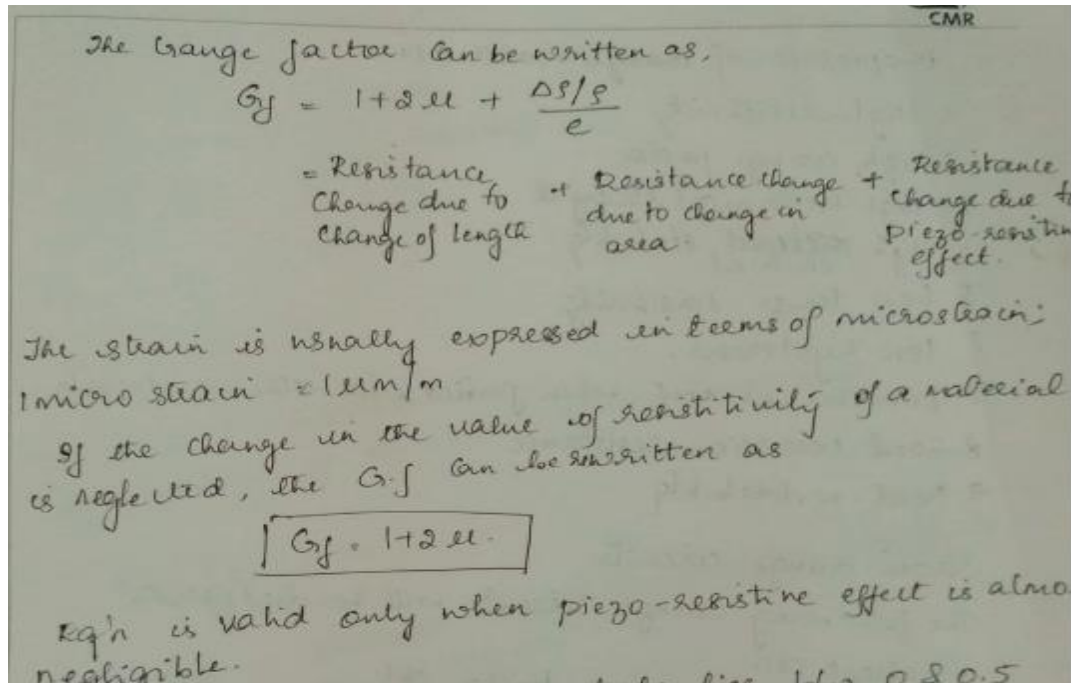 CMR
The Gauge factor Can be written as,
Gf = 1+2μ + Δρ/ρ / e
= Resistance Change due to Change of length + Resistance change due to change in area + Resistance change due to piezo-resistive effect.
The strain is usually expressed in terms of microstrain:
1 micro strain = 1 μm/m
If the change in the value of resistitivity of a material
is neglected, the G.f Can be rewritten as
Gf = 1+2μ.
Eq'n is valid only when piezo-resistive effect is almo
negligible.
0 & 0.5